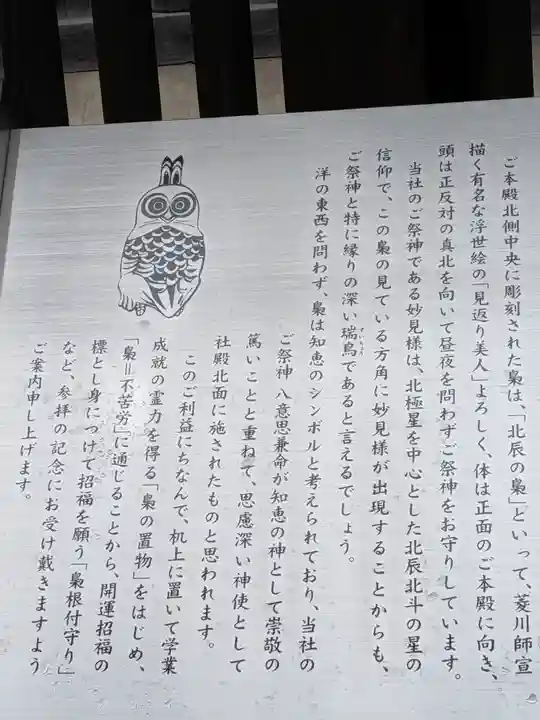 ご本殿北側中央に彫刻された梟は、「北辰の梟」といって、菱川師宣
描く有名な浮世絵の「見返り美人」よろしく、体は正面のご本殿に向き、
頭は正反対の真北を向いて昼夜を問わずご祭神をお守りしています。
当社のご祭神である妙見様は、北極星を中心とした北辰北斗の星の
信仰で、この梟の見ている方角に妙見様が出現することからも、
ご祭神と特に縁りの深い瑞鳥であると言えるでしょう。
洋の東西を問わず、梟は知恵のシンボルと考えられており、当社の
ご祭神 八意思兼命が知恵の神として崇敬の
篤いことと重ねて、思慮深い神使として
社殿北面に施されたものと思われます。
このご利益にちなんで、机上に置いて学業
成就の霊力を得る「梟の置物」をはじめ、
「梟＝不苦労」に通じることから、開運招福の
標とし身につけて招福を願う「梟根付守り」
など、参拝の記念にお受け戴きますよう
ご案内申し上げます。